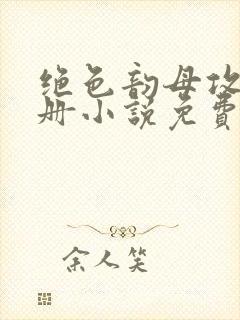 绝色韵母攻
册小说免费
余人笑